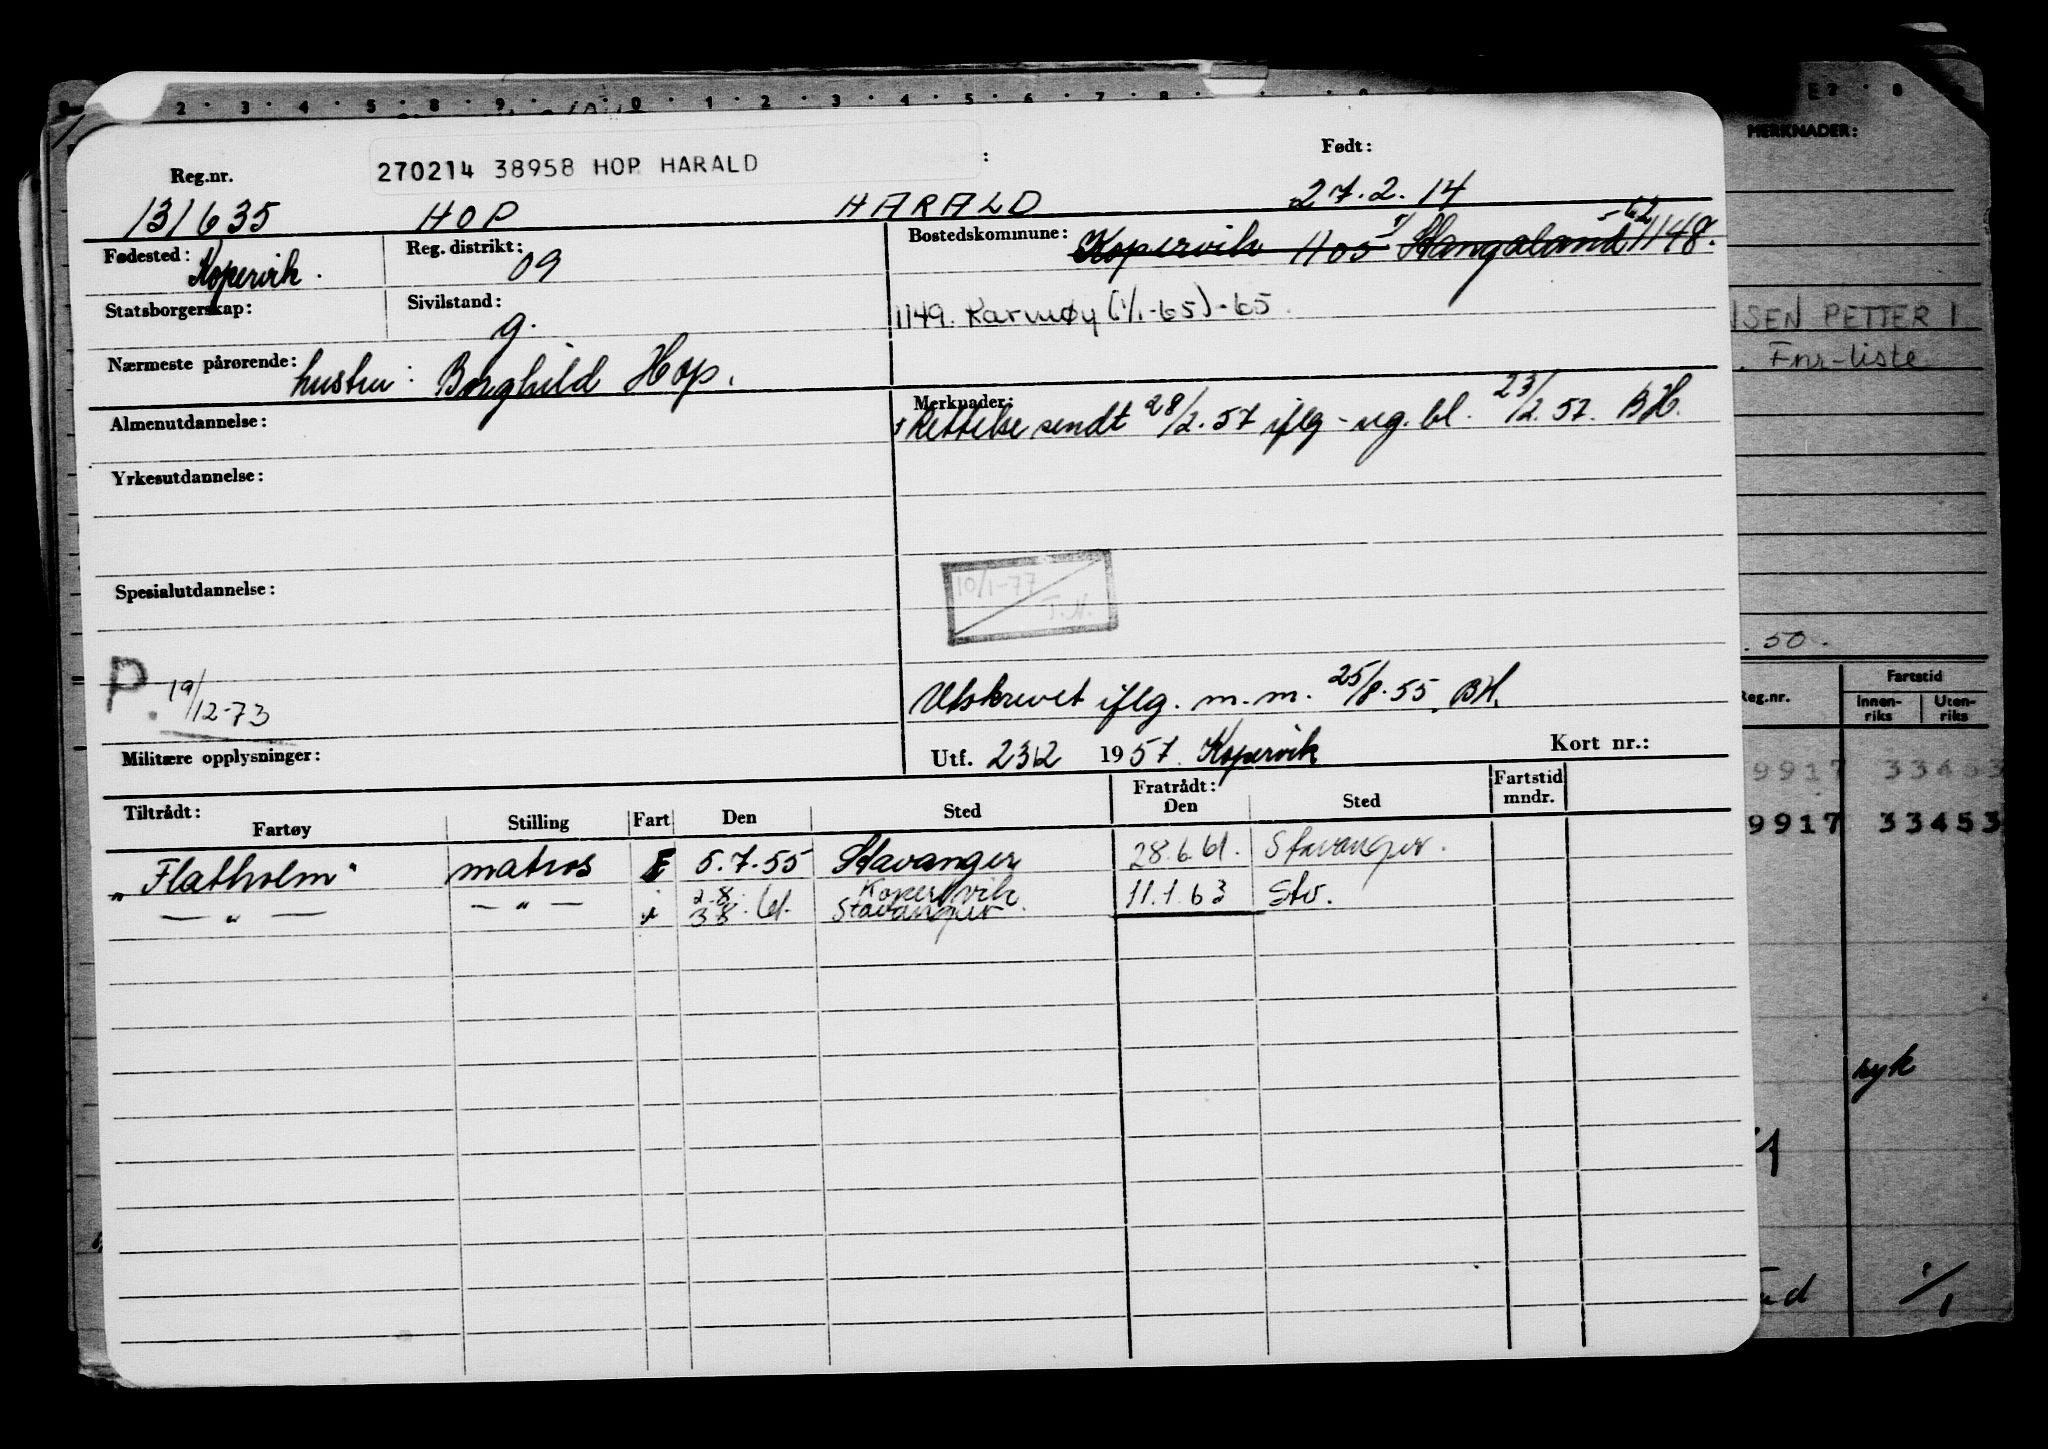 2 · 3 · 4 · 5 · 8 · 9 · 0 · 1 · 2 · 3 · 4 · 5 · 6 · 7 · 8
270214 38958 HOP HARALD
:
Reg.nr.
Født:
131635 HOP HARALD 27.2.14
Fødested: Kopervik.
Reg. distrikt: 09
Bostedskommune: Kopervik 1105 1/ Stangaland 1148. - 62
Statsborgerskap:
Sivilstand: g.
1149. Karmøy (1/1-65)-65.
Nærmeste pårørende: hustru: Borghild Hop.
Almenutdannelse:
Merknader:
Rettelse sendt 28/2.57 iflg - ug. bl. 23/2.57. BH.
Yrkesutdannelse:
10/1-77
T.N.
Spesialutdannelse:
P. 19/12-73
Utskrevet iflg. m.m. 25/8.55. BH.
Militære opplysninger:
Utf. 23/2 1957. Kopervik
Kort nr.:
Tiltrådt:
Fratrådt:
Fartøy Stilling Fart Den Sted Den Sted Fartstid mndr.
"Flatholm" matros E 5.7.55 Stavanger 28.6.61. Stavanger.
— " — — " — " 2.8. Kopervik
3.8.61. Stavanger. 11.1.63 Stv.
MERKNADER:
NSEN PETTER I
. Fnr-liste
. 50.
Reg.nr.
Fartstid
Innen-riks Uten-riks
9917 33453
9917 33453
syk
1/1